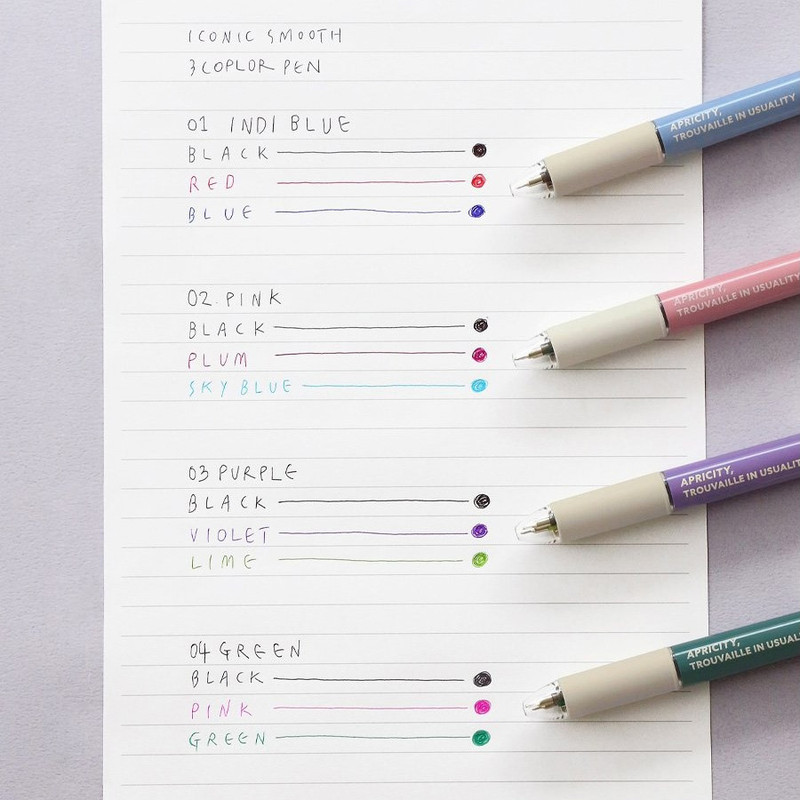 ICONIC SMOOTH
3 COPLOR PEN
01 INDI BLUE
BLACK
RED
BLUE
APRICITY,
TROUVAILLE IN USUALITY
02. PINK
BLACK
PLUM
SKY BLUE
APRICITY,
TROUVAILLE IN USUALITY
03 PURPLE
BLACK
VIOLET
LIME
APRICITY,
TROUVAILLE IN USUALITY
04 GREEN
BLACK
PINK
GREEN
APRICITY,
TROUVAILLE IN USUALI